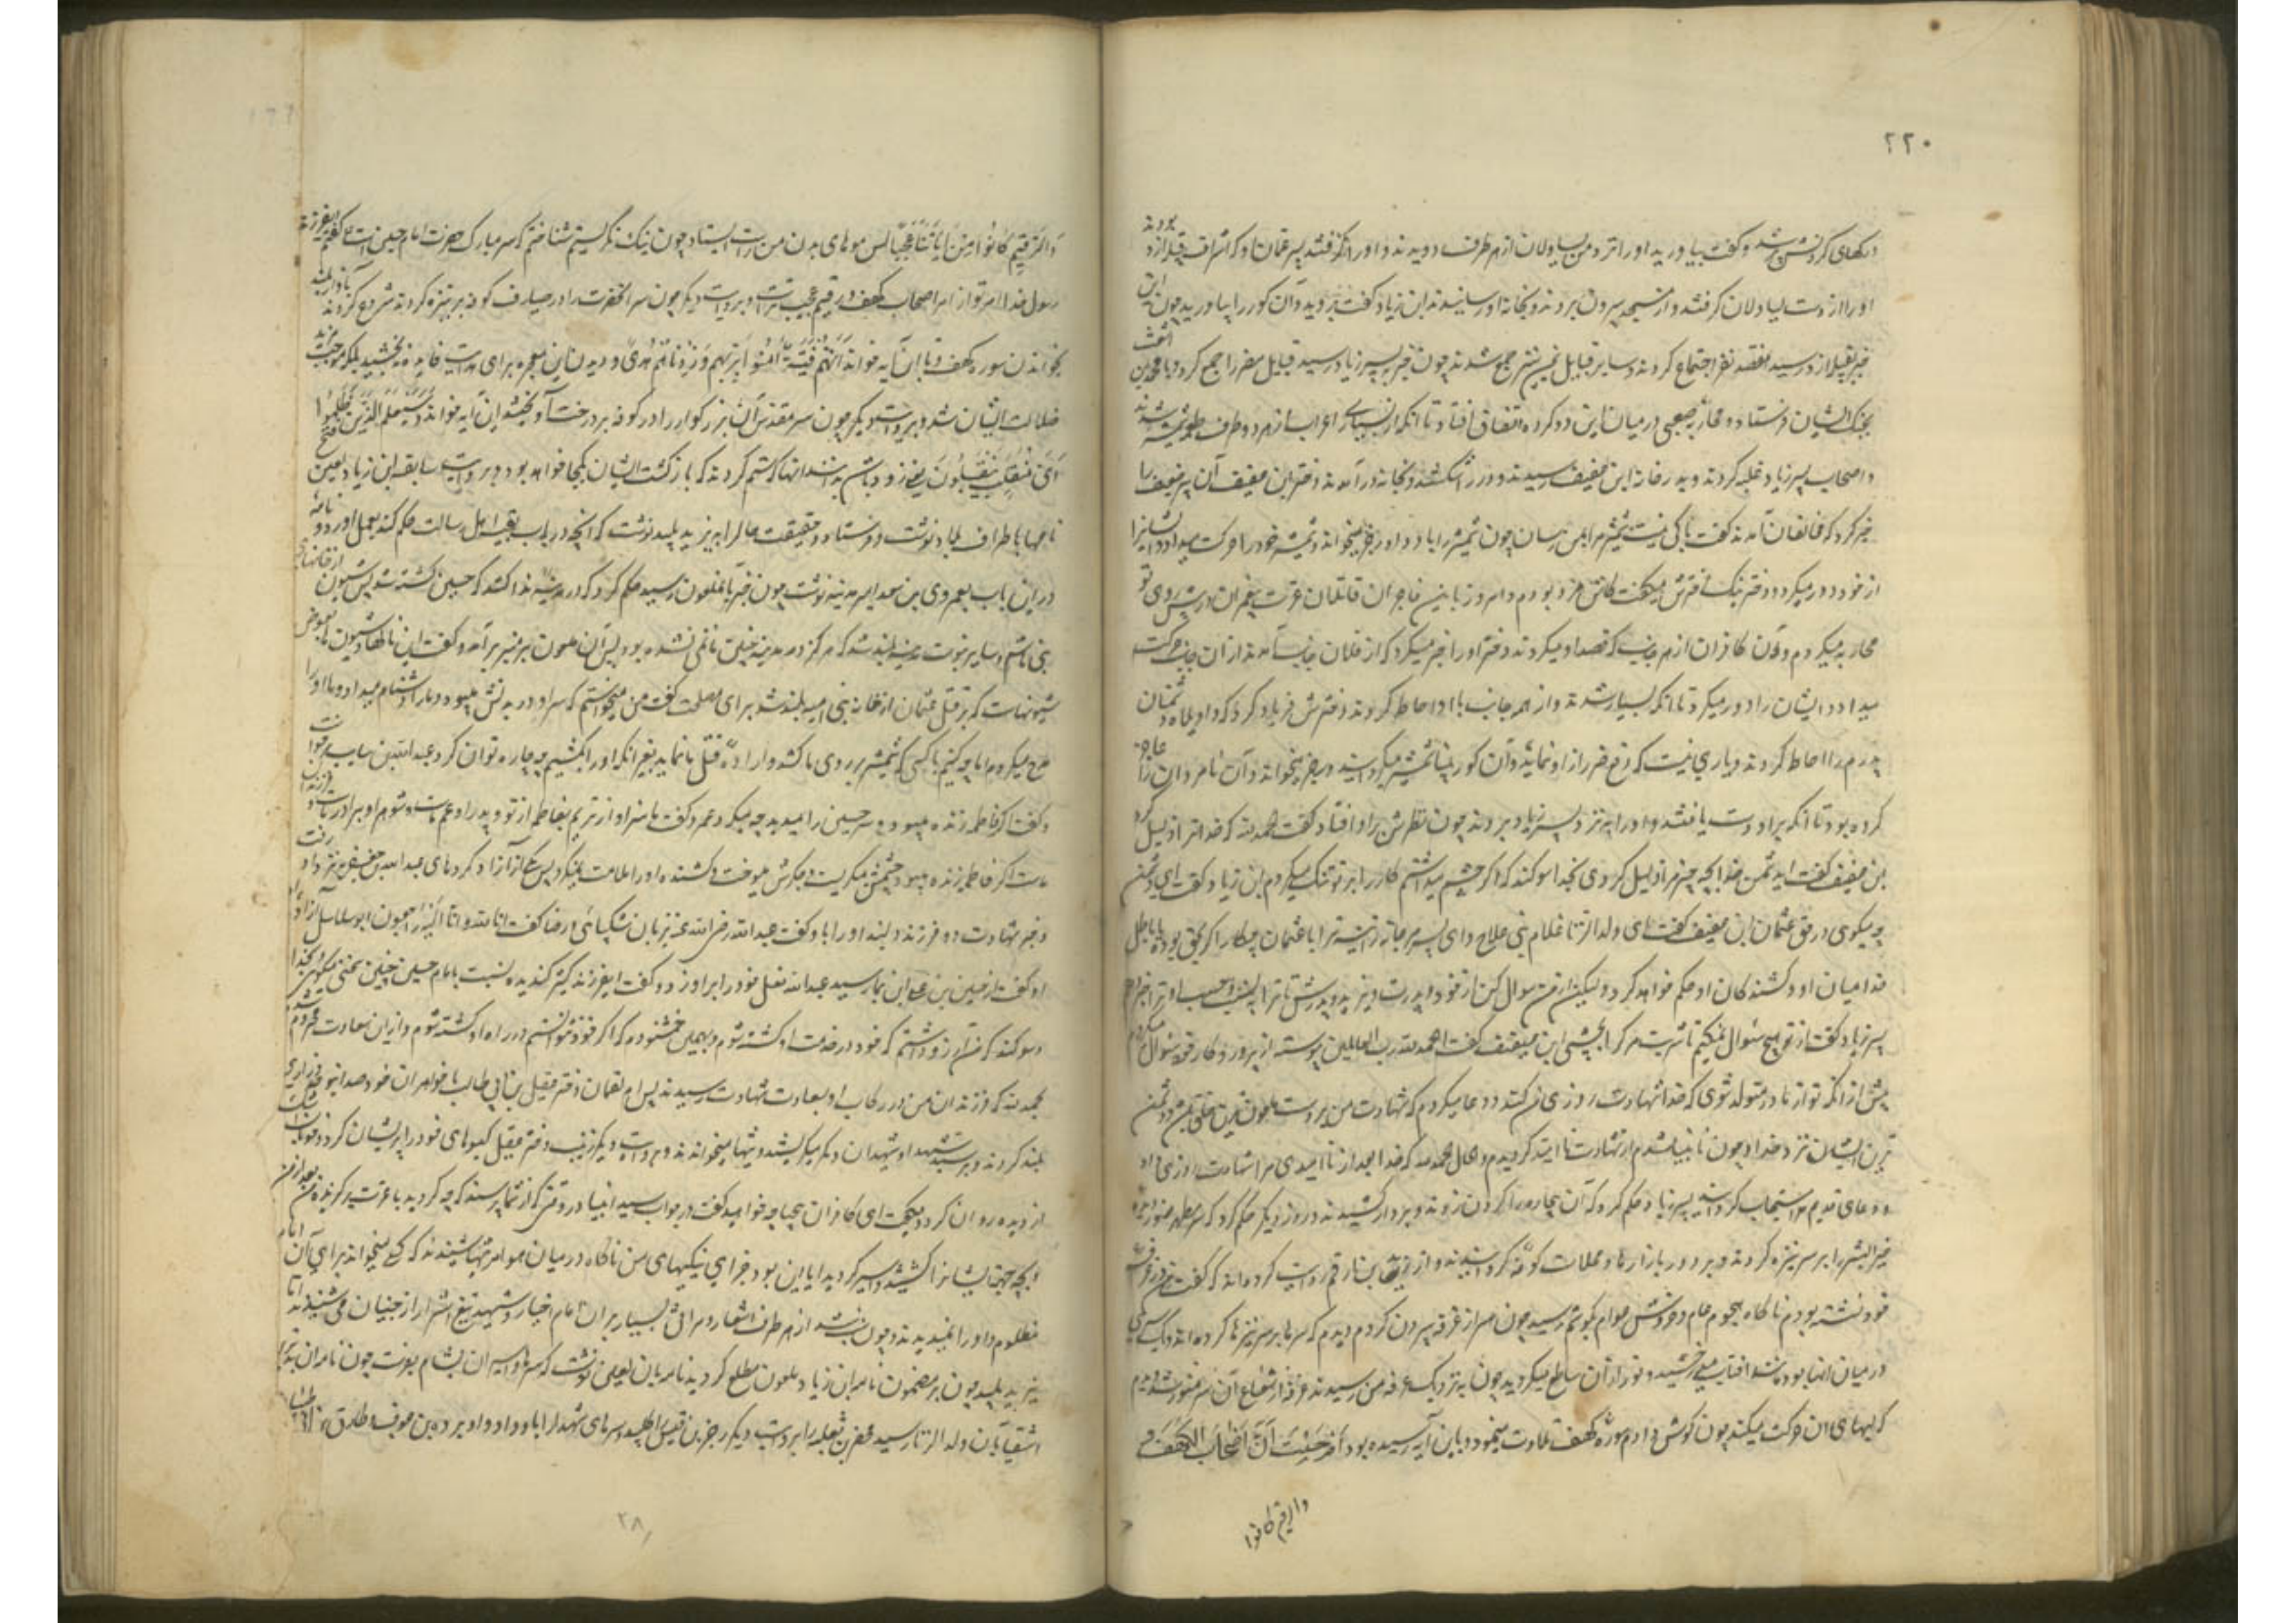 ۲۲۰
رکهای کردنش پر شد و گفت بیاورید او را نزد من یساولان از هر طرف دویدند و او را گرفتند پس
او را از دست یساولان گرفتند و از مسجد بیرون بردند و بخانه او رسانیدند ابن زیاد گفت بروید و آن کور را بیاورید چون این
خبر بقبیله ازد رسید هفتصد نفر اجتماع کردند و سایر قبایل یمن نیز جمع شدند چون خبر بپسر زیاد رسید قبایل مضر را جمع کرد و با محمد بن اشعث
بجنک ایشان فرستاد و محاربه صعبی در میان این دو کروه اتفاق افتاد تا آنکه بسیاری اعراب از هر دو طرف شدند
و اصحاب پسر زیاد غلبه کردند و بدر خانه ابن عفیف رسیدند و در را شکستند و بخانه درآمدند دختر ابن عفیف آن پیر ضعیف را
خبر کرد که مخالفان آمدند گفت باکی نیست شمشیر مرا بمن رسان چون شمشیر را باو داد رجز میخواند و شمشیر خود را حرکت میداد و ایشانرا
از خود دور میکرد و دختر نیک اخترش میگفت کاش مرد بودم و امروز با این فاجران قاتلان عترت پیغمبران در پیش روی تو
محاربه میکردم و آن کافران از هر جانب که قصد او میکردند دختر او را خبر میکرد که از فلان جانب آمدند از آن جانب حرکت
میداد و ایشان را دور میکرد تا آنکه بسیار شدند و از همه جانب او را احاطه کردند دخترش فریاد کرد که واویلاه دشمنان
پدرم را احاطه کردند و یاری نیست که دفع ضرر از او نماید و آن کور نابینا شمشیر میگردانید و رجز میخواند و آن نامردان را عاجز
کرده بود تا آنکه بر او دست یافتند و او را بنزد پسر زیاد بردند چون نظرش بر او افتاد گفت الحمدلله که خدا ترا ذلیل کرد
ابن عفیف گفت ای دشمن خدا بچه چیز مرا ذلیل کردی بخدا سوکند که اگر چشم میداشتم کار را بر تو تنک میکردم ابن زیاد گفت ای دشمن
چه میگوی در حق عثمان ابن عفیف گفت ای ولدالزنا غلام بنی علاج و ای پسر مرجانه زانیه ترا با عثمان چکار اگر بحق بود یا باطل
خدا میان او و کشندگان او حکم خواهد کرد ولیکن از من سوال کن از خود و پدرت و یزید و پدرش تا ترا
پسر زیاد گفت از تو هیچ سوال نمیکنم تا شربت مرک را بچشی ابن عفیف گفت الحمدلله رب العالمین پیوسته از پروردکار خود سوال میکردم
پیش از آنکه تو از مادر متولد شوی که خدا شهادت روزی من کند و دعا میکردم که شهادت من بر دست ملعون ترین خلق و دشمن
ترین ایشان نزد خدا و چون نابینا شدم از شهادت ناامید گردیدم و الحال الحمدلله که خدا بعد از ناامیدی مرا شهادت روزی کرد
و دعای قدیم مرا مستجاب گردانید پسر زیاد حکم کرد که آن بیچاره را گردن زدند و بر دار کشیدند و روز دیگر حکم کرد که سر مطهر منور
خیر البشر را بر سر نیزه کردند و در بازارها و محلات کوفه گردانیدند و از زید بن ارقم روایت کرده‌اند که گفت من در غرفه
خود نشسته بودم ناگاه هجوم عام و خروش عوام بگوشم رسید چون سر از غرفه بیرون کردم دیدم که سرها بر سر نیزها کرده‌اند و یک سری
در میان آنها بود مانند آفتاب میدرخشید و نور از آن ساطع میگردید چون بنزدیک غرفه من رسیدند غرفه از شعاع آن سر منور شد دیدم
که لبهای آن حرکت میکند چون گوش دادم سوره کهف تلاوت مینمود و باین آیه رسیده بود ام حسبت ان اصحاب الکهف و
والرقیم کانوا
والرقیم کانوا من آیاتنا عجبا پس موهای بدن من راست ایستاد چون نیک نگریستم شناختم که سر مبارک حضرت امام حسین است گفتم ای فرزند
رسول خدا امر تو از امر اصحاب کهف و رقیم عجیب تر است و بروایت دیگر چون سر آنحضرت را در صیارف کوفه بر نیزه کردند شروع کرد به
بخواندن سوره کهف و تا آن آیه خواند انهم فتیة آمنوا بربهم و زدناهم هدی و دیدن این معجزه برای هدایت فایده نبخشید بلکه موجب مزید
ضلالت ایشان شد و بروایت دیگر چون سر مقدس آن بزرگوار را در کوفه بر درخت آویختند این آیه خواند و سیعلم الذین ظلموا
ای منقلب ینقلبون یعنی زود باشد بدانند آنها که ستم کردند که بازگشت ایشان بکجا خواهد بود و بروایت سابقه ابن زیاد لعین
نامها باطراف بلاد نوشت و فرستاد و حقیقت حال را به یزید پلید نوشت که آنچه در باب بقیه اهل رسالت حکم کند بعمل آورد و نامه
در این باب بعمرو بن سعد امیر مدینه نوشت چون خبر بآن ملعون رسید حکم کرد که در مدینه ندا کنند که حسین کشته شد پس شیون از خانهای
بنی هاشم و سایر بیوت مدینه بلند شد که هرگز در مدینه چنین ماتمی نشده بود پس آن ملعون بر منبر برآمد و گفت این نالها و شیونها بعوض
شیونهاست که بر قتل عثمان از خانه بنی امیه بلند شد برای مصلحت گفت من میخواستم که سر او در بدنش میبود و ما را دشنام میداد و ما او را
مدح میکردم اما چه کنیم با کسی که شمشیر بر روی ما کشد و اراده قتل ما نماید بغیر آنکه او را بکشیم چه چاره توان کرد عبدالله بن سایب برخواست
و گفت اگر فاطمه زنده میبود و سر حسین را میدید چه میکرد عمرو گفت ما سزاوارتریم بفاطمه از تو
اگر فاطمه زنده میبود چشمش میگریست و جگرش میسوخت و کشنده او را ملامت نمیکرد پس یکی از آزاد کردهای عبدالله بن جعفر بنزد او رفت
و خبر شهادت دو فرزند دلبند او را باو گفت عبدالله رضی الله عنه بزبان شکیبائی و رضا گفت انا لله و انا الیه راجعون ابوسلاسل آزاد کرده
او گفت از حسین بن علی این بما رسید عبدالله نعل خود را بر او زد و گفت ای فرزند کنیز گندیده نسبت بامام حسین چنین سخنی میگویی بخدا
سوکند که من آرزو داشتم که خود در خدمت او کشته شوم
الحمدلله که فرزندان من در رکاب او بسعادت شهادت رسیدند پس ام لقمان دختر عقیل بن ابی طالب با خواهران خود صدا بنوحه و زاری
بلند کردند و بر سید شهدا و شهیدان دیگر میگریستند و مرثیها میخواندند و بروایت دیگر زینب دختر عقیل گیسوهای خود را پریشان کرد و خوناب اشک
از دیده روان کرد و میگفت ای کافران بیحیا چه خواهید گفت در جواب سید انبیا در وقتی که از شما پرسند که چه کردید با عترت برگزیده من بعد از من
و بچه جهت ایشانرا کشتید و اسیر کردید آیا این بود جزای نیکیهای من ناگاه در میان هوا مرثیها شنیدند که کسی میخواند برای آن امام
مظلوم و او را نمیدیدند و چون شب شد از هر طرف اشعار و مراثی بسیار بر آن امام اخیار و شهید تیغ اشرار از جنیان می شنیدند
یزید پلید چون بر مضمون نامه ابن زیاد ملعون مطلع گردید نامه بآن لعین نوشت که سرها و اسیران بشام بفرست چون نامه
اشقیا بآن ولدالزنا رسید محضر بن ثعلبه را بروایت دیگر زجر بن قیس را طلبید و سرهای شهدا را باو داد و ابو برده بن عوف و طارق بن
۲۸